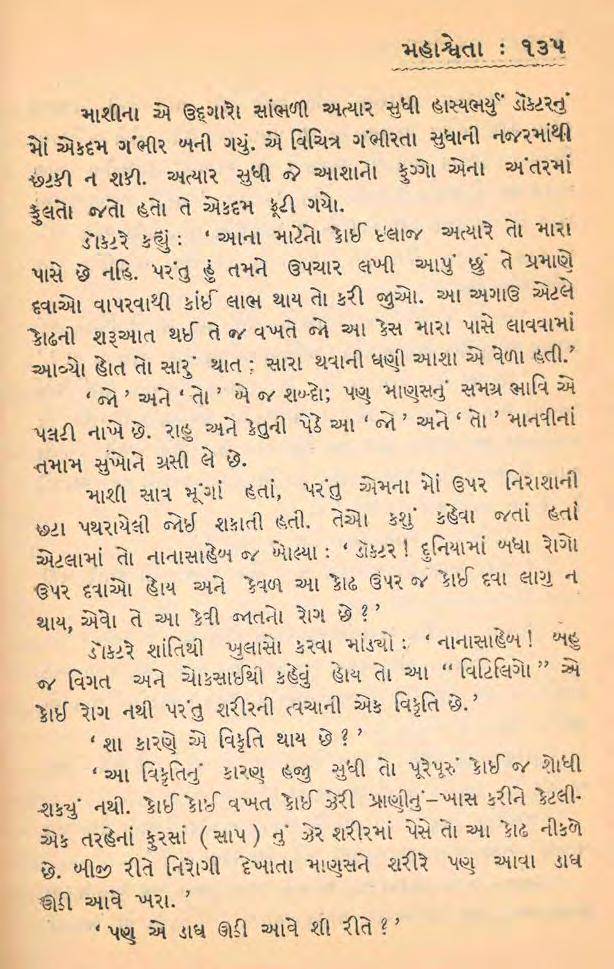 મહાશ્વેતા : ૧૩૫
માશીના એ ઉદ્‌ગારો સાંભળી અત્યાર સુધી હાસ્યભર્યું ડૉક્ટરનું
મોં એકદમ ગંભીર બની ગયું. એ વિચિત્ર ગંભીરતા સુધાની નજરમાંથી
છટકી ન શકી. અત્યાર સુધી જે આશાનો ફુગ્ગો એના અંતરમાં
ફુલતો જતો હતો તે એકદમ ફૂટી ગયો.
ડૉક્ટરે કહ્યું : ‘ આના માટેનો કોઈ ઇલાજ અત્યારે તો મારા
પાસે છે નહિ. પરંતુ હું તમને ઉપચાર લખી આપું છું તે પ્રમાણે
દવાઓ વાપરવાથી કાંઈ લાભ થાય તો કરી જુઓ. આ અગાઉ એટલે
કોઢની શરૂઆત થઈ તે જ વખતે જો આ કેસ મારા પાસે લાવવામાં
આવ્યો હોત તો સારું થાત ; સારા થવાની ઘણી આશા એ વેળા હતી.’
‘ જો ’ અને ‘ તો ’ બે જ શબ્દો; પણ માણસનું સમગ્ર ભાવિ એ
પલટી નાખે છે. રાહુ અને કેતુની પેઠે આ ‘ જો ’ અને ‘ તો ’ માનવીનાં
તમામ સુખોને ગ્રસી લે છે.
માશી સાવ મૂંગાં હતાં, પરંતુ એમના મોં ઉપર નિરાશાની
છટા પથરાયેલી જોઈ શકાતી હતી. તેઓ કશું કહેવા જતાં હતાં
એટલામાં તો નાનાસાહેબ જ બોલ્યા : ‘ ડૉક્ટર ! દુનિયામાં બધા રોગો
ઉપર દવાઓ હોય અને કેવળ આ કોઢ ઉપર જ કોઈ દવા લાગુ ન
થાય, એવો તે આ કેવી જાતનો રોગ છે ? ’
ડૉક્ટરે શાંતિથી ખુલાસો કરવા માંડ્યો : ‘ નાનાસાહેબ ! બહુ
જ વિગત અને ચોકસાઈથી કહેવું હોય તો આ “ વિટિલિગો ” એ
કોઈ રોગ નથી પરંતુ શરીરની ત્વચાની એક વિકૃતિ છે. ’
‘ શા કારણે એ વિકૃતિ થાય છે ? ’
‘ આ વિકૃતિનું કારણ હજી સુધી તો પૂરેપૂરું કોઈ જ શોધી
શક્યું નથી. કોઈ કોઈ વખત કોઈ ઝેરી પ્રાણીનું–ખાસ કરીને કેટલી-
એક તરહેનાં ફુરસાં ( સાપ ) નું ઝેર શરીરમાં પેસે તો આ કોઢ નીકળે
છે. બીજી રીતે નિરોગી દેખાતા માણસને શરીરે પણ આવા ડાઘ
ઊઠી આવે ખરા. ’
‘ પણ એ ડાઘ ઊઠી આવે શી રીતે ? ’